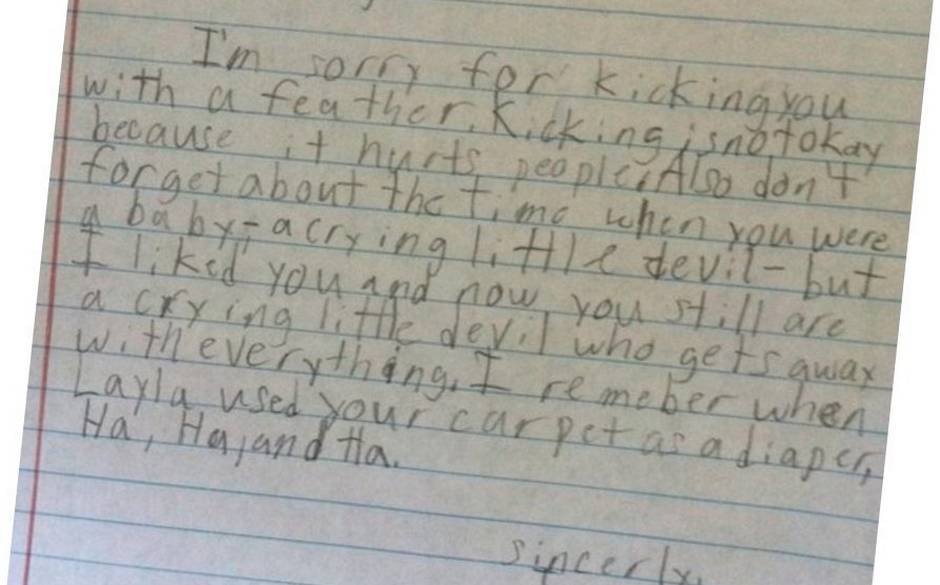 I'm sorry for kicking you
with a feather. Kicking is not okay
because it hurts people. Also don't
forget about the time when you were
a baby - a crying little devil - but
I liked you and now you still are
a crying little devil who gets away
with everything. I remeber when
Layla used your carpet as a diaper.
Ha, Ha, and Ha.
sincerly,